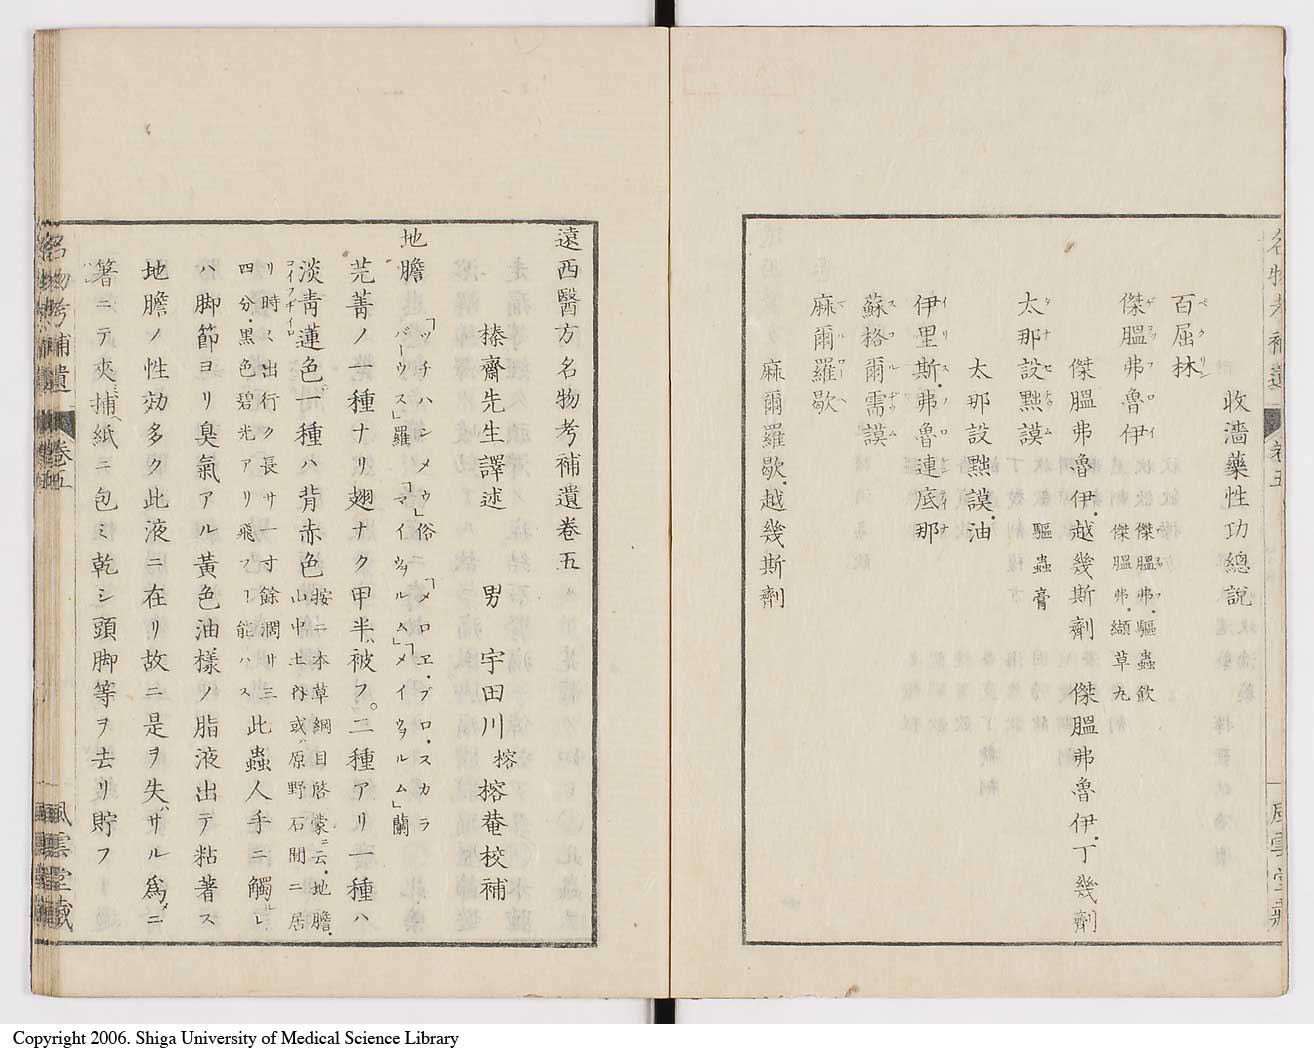 收濇藥性功總說
百屈林
ペクリン
傑膃弗魯伊
傑膃弗.驅蟲飲
傑膃弗.纈草丸
傑膃弗魯伊.越幾斯劑 傑膃弗魯伊.丁幾劑
太那設㸃謨 驅蟲膏
太那設㸃謨.油
伊里斯.弗魯連底那
蘇格爾需謨
麻爾羅歇
麻爾羅歇.越幾斯劑
名物考補遺 卷五 風雲堂藏
遠西醫方名物考補遺卷五
榛齋先生譯述 男 宇田川榕榕菴校補
地膽 「ツチハンメウ」俗 「メロエ.プロ.スカラ
バーウス」羅 「マイウヲルム」「メイウヲルム」蘭
芫菁ノ一種ナリ翅ナク甲半被フ。二種アリ一種ハ
淡靑蓮色一種ハ背赤色 按ニ本草綱目啓蒙ニ云.地膽.
コイフヂイロ
山中ニ生ス或ハ原野石間ニ居
リ時ス出行ク長サ一寸餘濶サ三
四分.黑色碧光アリ飛フヿ能ハス 此蟲人手ニ觸ルレ
ハ脚節ヨリ臭氣アル黃色油樣ノ脂液出テ粘著ス
地膽ノ性効多ク此液ニ在リ故ニ是ヲ失ハサル爲メニ
箸ニテ夾ミ捕ヘ紙ニ包ミ乾シ頭脚等ヲ去リ貯フヘシ
名物考補遺 卷五 風雲堂藏
Copyright 2006. Shiga University of Medical Science Library